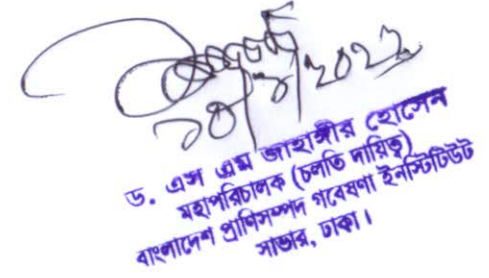 ড. এস এম জাহাঙ্গীর হোসেন
মহাপরিচালক (চলতি দায়িত্ব)
বাংলাদেশ প্রাণিসম্পদ গবেষণা ইনস্টিটিউট
সাভার, ঢাকা।